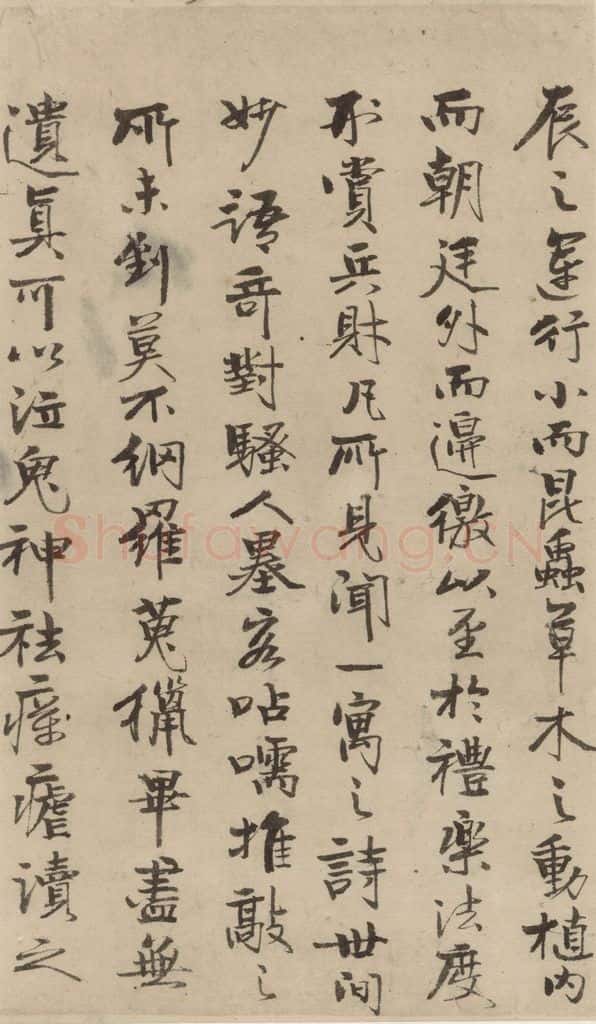 辰之運行小而昆蟲草木之動植内
而朝廷外而邊徼以至於禮樂法度
刑賞兵財凡所見聞一寓之詩世間
妙語奇對騷人墨客呫嚅推敲之
所未到莫不網羅蒐獵畢盡無
遺真可以泣鬼神祛瘴瘧讀之
Shufawang.CN